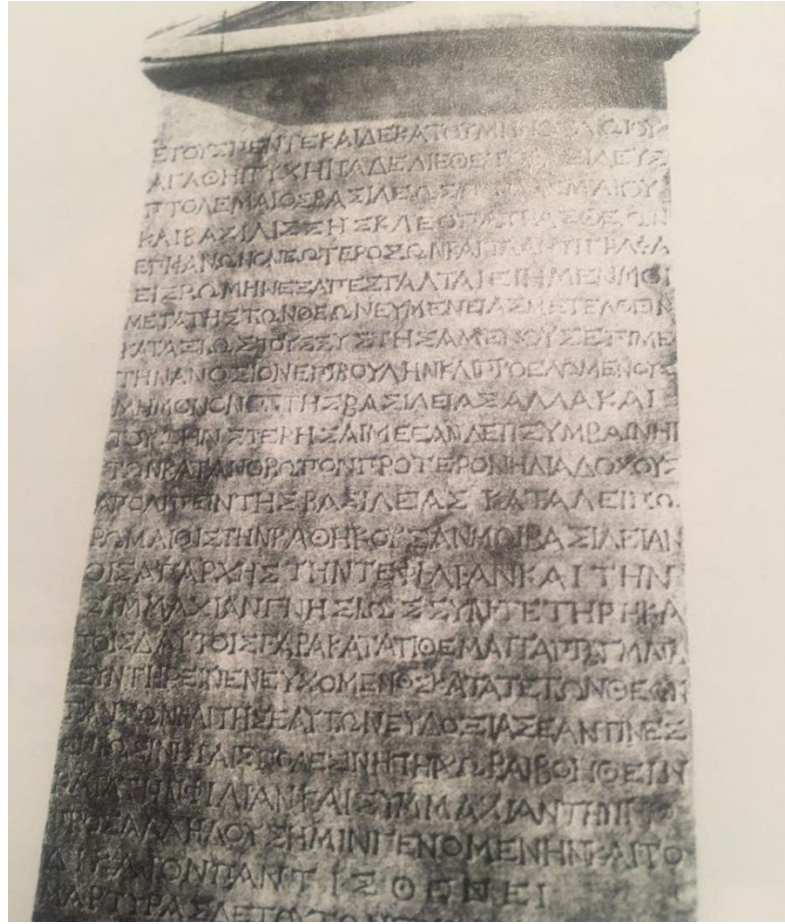 ΕΤΟΥΣ ΠΕΝΤΕΚΑΙΔΕΚΑΤΟΥ ΜΗΝΟΣ ΛΩΙΟΥ
ΑΓΑΘΗΙ ΤΥΧΗΙ ΤΑΔΕ ΔΙΕΘΕΤΟ ΒΑΣΙΛΕΥΣ
ΠΤΟΛΕΜΑΙΟΣ ΒΑΣΙΛΕΩΣ ΠΤΟΛΕΜΑΙΟΥ
ΚΑΙ ΒΑΣΙΛΙΣΣΗΣ ΚΛΕΟΠΑΤΡΑΣ ΘΕΩΝ
ΕΠΙΦΑΝΩΝ Ο ΝΕΩΤΕΡΟΣ ΩΝ ΚΑΙ ΤΑ ΑΝΤΙΓΡΑΦΑ
ΕΙΣ ΡΩΜΗΝ ΕΞΑΠΕΣΤΑΛΤΑΙ ΕΙΗ ΜΕΝ ΜΟΙ
ΜΕΤΑ ΤΗΣ ΤΩΝ ΘΕΩΝ ΕΥΜΕΝΕΙΑΣ ΜΕΤΕΛΘΕΙΝ
ΚΑΤΑΞΙΩΣ ΤΟΥΣ ΣΥΣΤΗΣΑΜΕΝΟΥΣ ΕΠΙ ΜΕ
ΤΗΝ ΑΝΟΣΙΟΝ ΕΠΙΒΟΥΛΗΝ ΚΑΙ ΠΡΟΕΛΟΜΕΝΟΥΣ
ΜΗ ΜΟΝΟΝ ΤΗΣ ΒΑΣΙΛΕΙΑΣ ΑΛΛΑ ΚΑΙ
ΤΟΥ ΖΗΝ ΣΤΕΡΗΣΑΙ ΜΕ ΕΑΝ ΔΕ ΤΙ ΣΥΜΒΑΙΝΗΙ
ΤΩΝ ΚΑΤ ΑΝΘΡΩΠΟΝ ΠΡΟΤΕΡΟΝ Η ΔΙΑΔΟΧΟΥΣ
ΑΠΟΛΙΠΕΙΝ ΤΗΣ ΒΑΣΙΛΕΙΑΣ ΚΑΤΑΛΕΙΠΩ
ΡΩΜΑΙΟΙΣ ΤΗΝ ΚΑΘΗΚΟΥΣΑΝ ΜΟΙ ΒΑΣΙΛΕΙΑΝ
ΟΙΣ ΑΠ ΑΡΧΗΣ ΤΗΝ ΤΕ ΦΙΛΙΑΝ ΚΑΙ ΤΗΝ
ΣΥΜΜΑΧΙΑΝ ΓΝΗΣΙΩΣ ΣΥΝΤΕΤΗΡΗΚΑ
ΤΟΙΣ Δ ΑΥΤΟΙΣ ΠΑΡΑΚΑΤΑΤΙΘΕΜΑΙ ΤΑ ΠΡΑΓΜΑΤΑ
ΣΥΝΤΗΡΕΙΝ ΕΝΕΥΧΟΜΕΝΟΣ ΚΑΤΑ ΤΕ ΤΩΝ ΘΕΩΝ
ΠΑΝΤΩΝ ΚΑΙ ΤΗΣ ΕΑΥΤΩΝ ΕΥΔΟΞΙΑΣ ΕΑΝ ΤΙΝΕΣ
ΕΠΙΩΣΙΝ Η ΤΑΙΣ ΠΟΛΕΣΙΝ Η ΤΗΙ ΧΩΡΑΙ ΒΟΗΘΕΙΝ
ΚΑΤΑ ΤΗΝ ΦΙΛΙΑΝ ΚΑΙ ΣΥΜΜΑΧΙΑΝ ΤΗΝ
ΠΡΟΣ ΑΛΛΗΛΟΥΣ ΗΜΙΝ ΓΕΝΟΜΕΝΗΝ ΚΑΙ ΤΟ
ΔΙΚΑΙΟΝ ΠΑΝΤΙ ΣΘΕΝΕΙ
ΜΑΡΤΥΡΑΣ ΔΕ ΤΟΥΤΩΝ